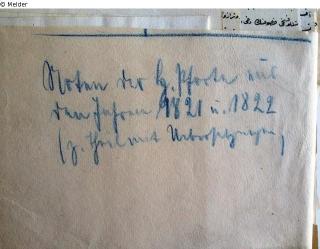 © Melder
Noten der h. Pforte aus
den Jahren 1821 u. 1822
(z. Theil mit Uebersetzungen)